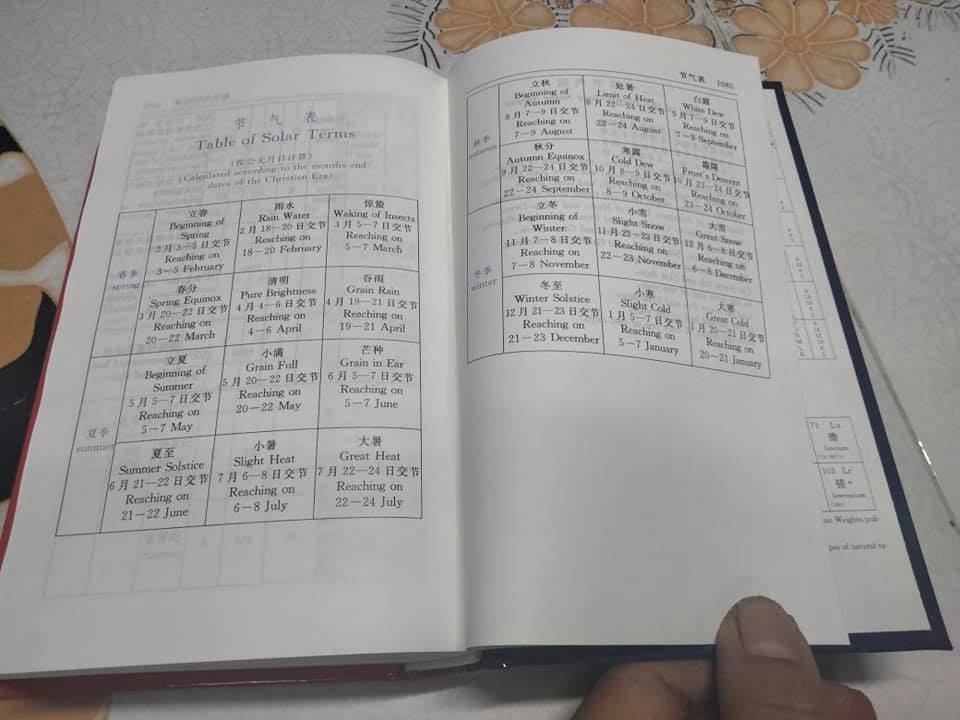 节气表
Table of Solar Terms
(按公元月日计算)
(Calculated according to the months and
dates of the Christian Era)
春季
spring
立春
Beginning of
Spring
2月3—5日交节
Reaching on
3—5 February
雨水
Rain Water
2月18—20日交节
Reaching on
18—20 February
惊蛰
Waking of Insects
3月5—7日交节
Reaching on
5—7 March
春分
Spring Equinox
3月20—22日交节
Reaching on
20—22 March
清明
Pure Brightness
4月4—6日交节
Reaching on
4—6 April
谷雨
Grain Rain
4月19—21日交节
Reaching on
19—21 April
夏季
summer
立夏
Beginning of
Summer
5月5—7日交节
Reaching on
5—7 May
小满
Grain Full
5月20—22日交节
Reaching on
20—22 May
芒种
Grain in Ear
6月5—7日交节
Reaching on
5—7 June
夏至
Summer Solstice
6月21—22日交节
Reaching on
21—22 June
小暑
Slight Heat
7月6—8日交节
Reaching on
6—8 July
大暑
Great Heat
7月22—24日交节
Reaching on
22—24 July
节气表 1085
秋季
autumn
立秋
Beginning of
Autumn
8月7—9日交节
Reaching on
7—9 August
处暑
Limit of Heat
8月22—24日交节
Reaching on
22—24 August
白露
White Dew
9月7—9日交节
Reaching on
7—9 September
秋分
Autumn Equinox
9月22—24日交节
Reaching on
22—24 September
寒露
Cold Dew
10月8—9日交节
Reaching on
8—9 October
霜降
Frost's Descent
10月23—24日交节
Reaching on
23—24 October
冬季
winter
立冬
Beginning of
Winter
11月7—8日交节
Reaching on
7—8 November
小雪
Slight Snow
11月22—23日交节
Reaching on
22—23 November
大雪
Great Snow
12月6—8日交节
Reaching on
6—8 December
冬至
Winter Solstice
12月21—23日交节
Reaching on
21—23 December
小寒
Slight Cold
1月5—7日交节
Reaching on
5—7 January
大寒
Great Cold
1月20—21日交节
Reaching on
20—21 January
71 Lu
镥
103 Lr
铹*
lawrencium
Weights pub-
pes of natural